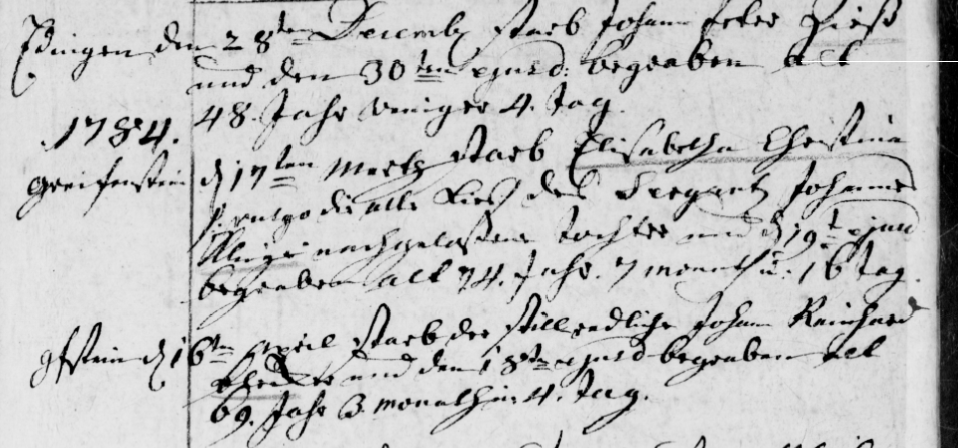 Edingen den 28ten Decembr starb Johann Peter
und den 30ten ejusd: begraben alt
48. Jahr weniger 4. Tag.
1784.
Greifenstein d 17ten Mertz starb Elisabetha Christina
die alte des Sergant Johannes
nachgelaßene Tochter und d 19t ejusd
begraben alt 74. Jahr. 7 monath u. 16 Tag.
gfstein d 16ten April starb der Johann Reinhard
und den 18ten ejusd begraben alt
69. Jahr 3. monath 4. Tag.